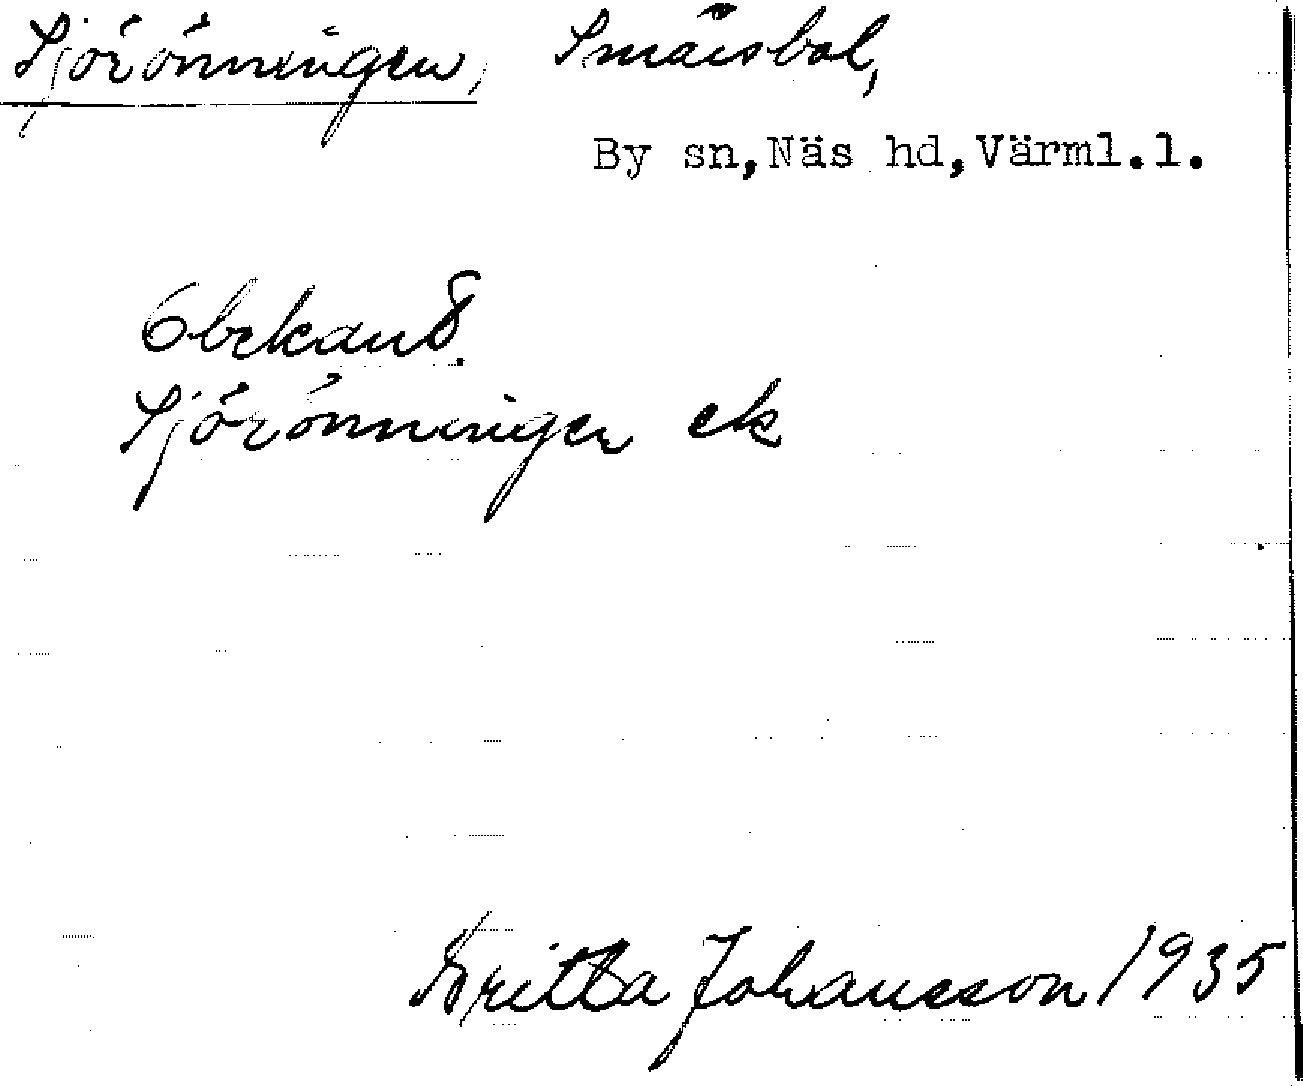 Sjörönningen, Smärsbol,
By sn,Näs hd,Värml.l.
Obekant.
Sjörönningen ek
Britta Johansson 1935